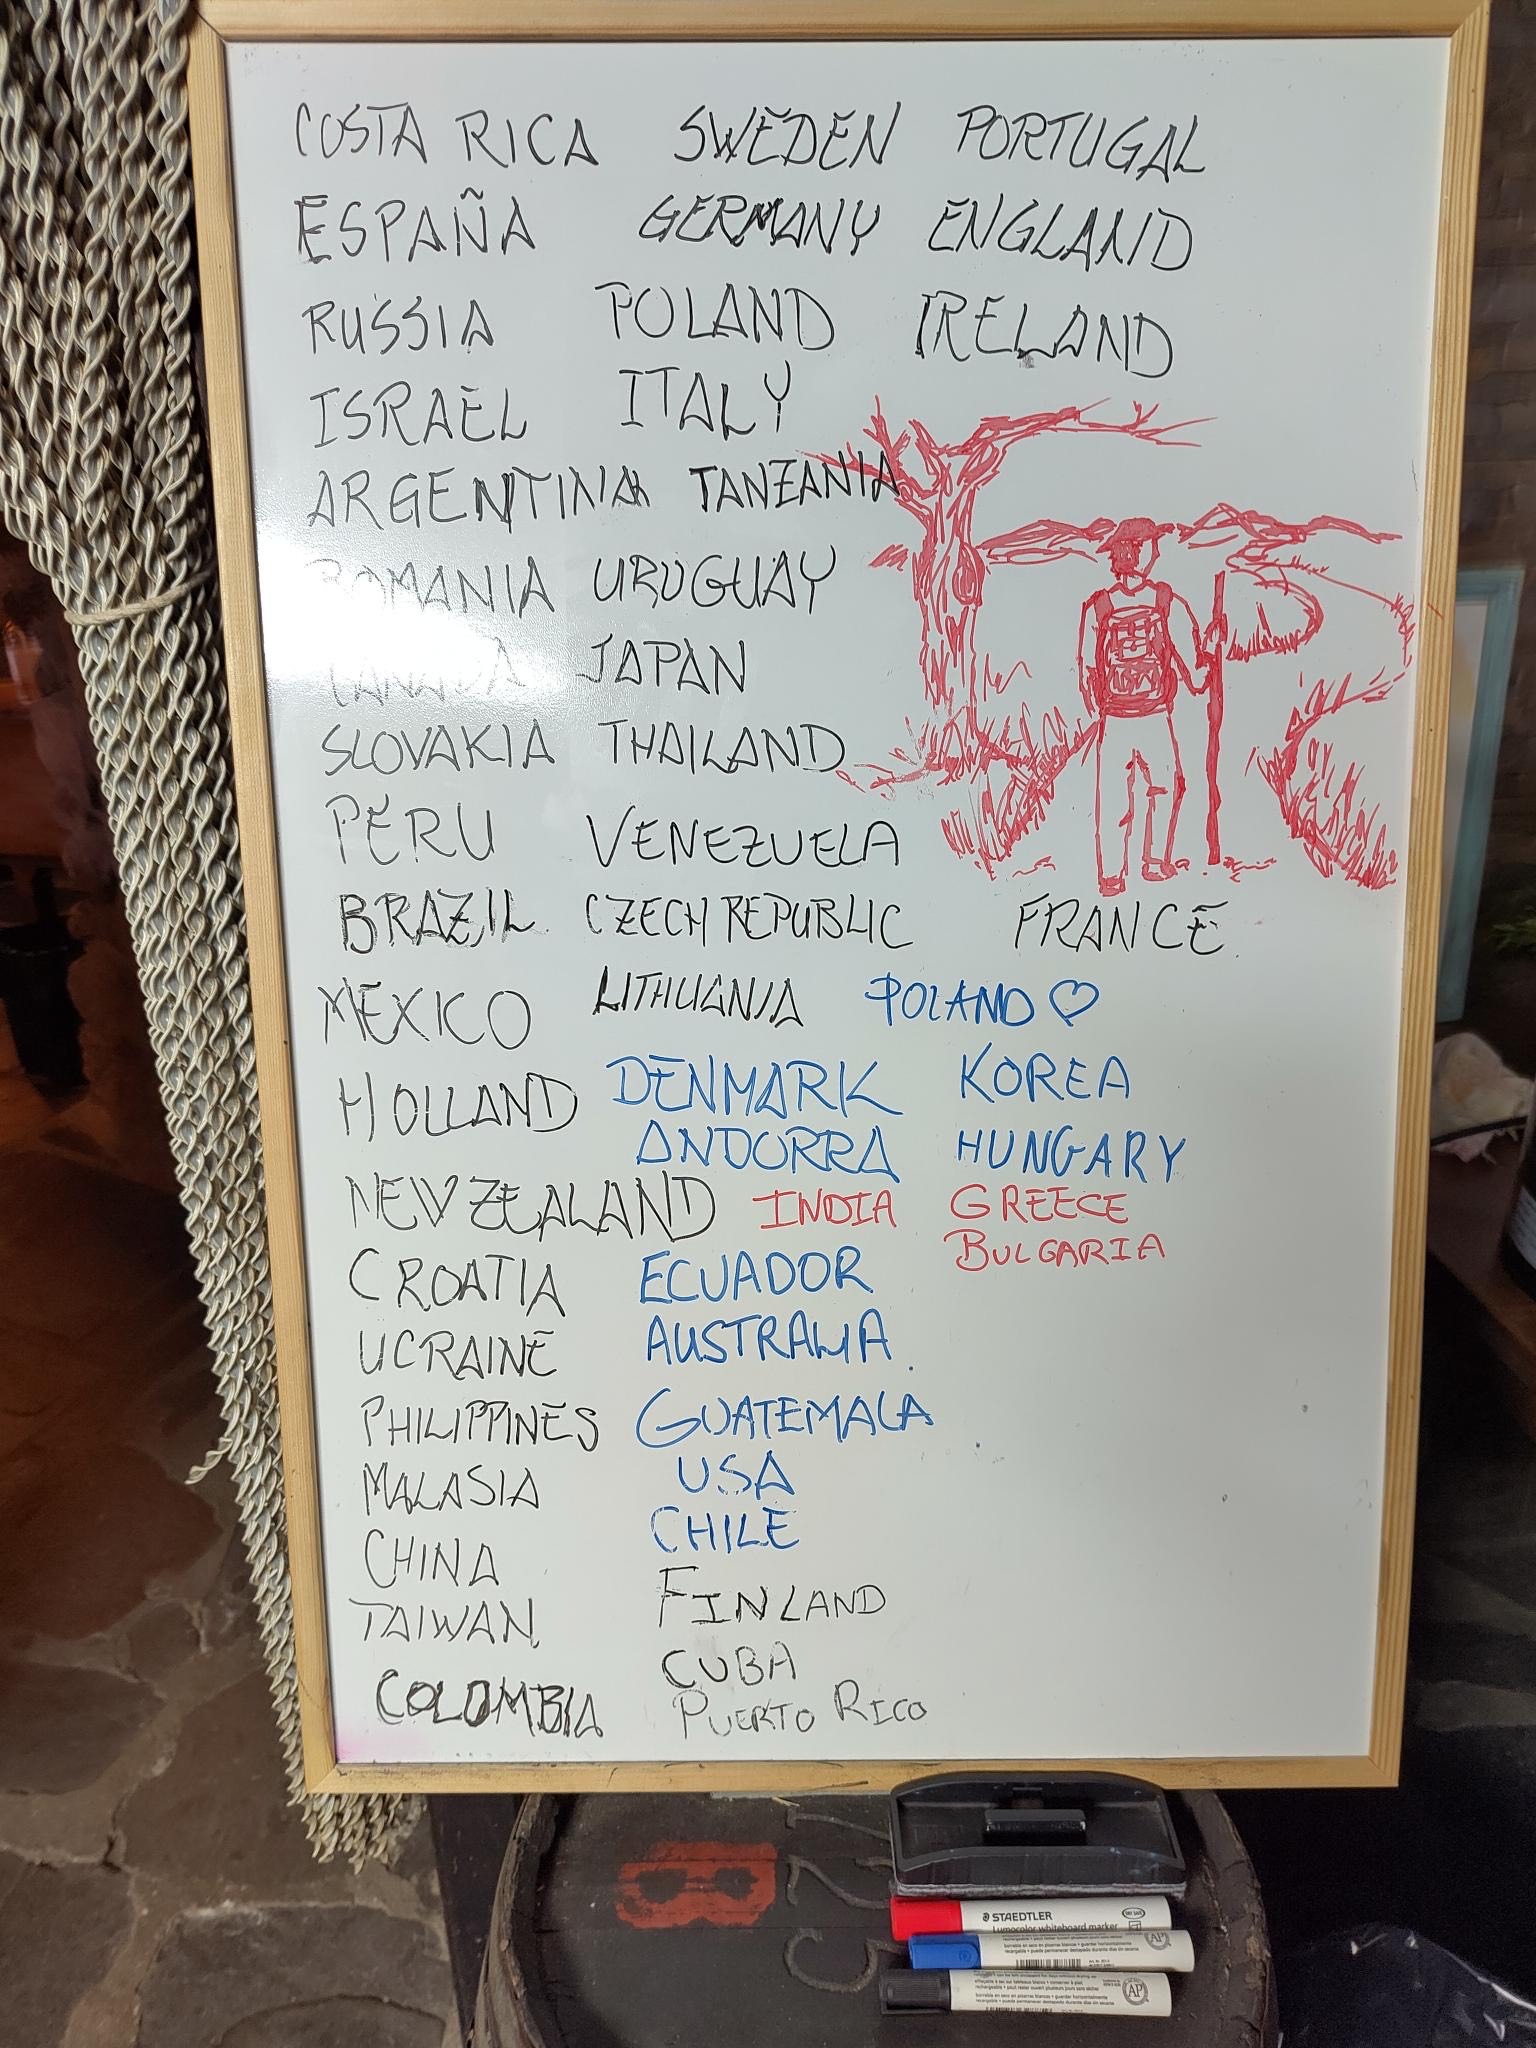 COSTA RICA SWEDEN PORTUGAL
ESPAÑA GERMANY ENGLAND
RUSSIA POLAND IRELAND
ISRAEL ITALY
ARGENTINA TANZANIA
ROMANIA URUGUAY
CANADA JAPAN
SLOVAKIA THAILAND
PERU VENEZUELA
BRAZIL CZECH REPUBLIC FRANCE
MEXICO LITHUANIA POLAND ♡
HOLLAND DENMARK KOREA
ANDORRA HUNGARY
NEW ZEALAND INDIA GREECE
BULGARIA
CROATIA ECUADOR
UCRAINE AUSTRALIA
PHILIPPINES GUATEMALA
MALASIA USA
CHINA CHILE
TAIWAN FINLAND
CUBA
COLOMBIA PUERTO RICO
STAEDTLER
Lumocolor whiteboard marker
AP
AP